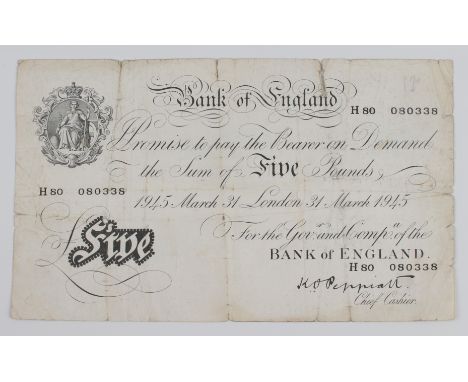 Bank of England
H80 080338
I Promise to pay the Bearer on Demand
the Sum of Five Pounds
H80 080338
1945 March 31 London 31 March 1945
For the Govr. and Compa. of the
BANK of ENGLAND.
£ Five
H80 080338
K O Peppiatt
Chief Cashier.